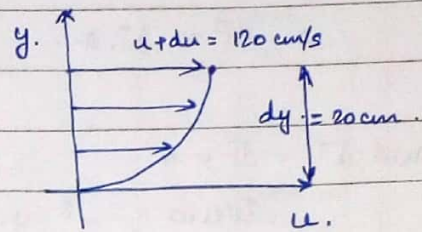 y.
u+du = 120 cm/s
dy = 20cm.
u.